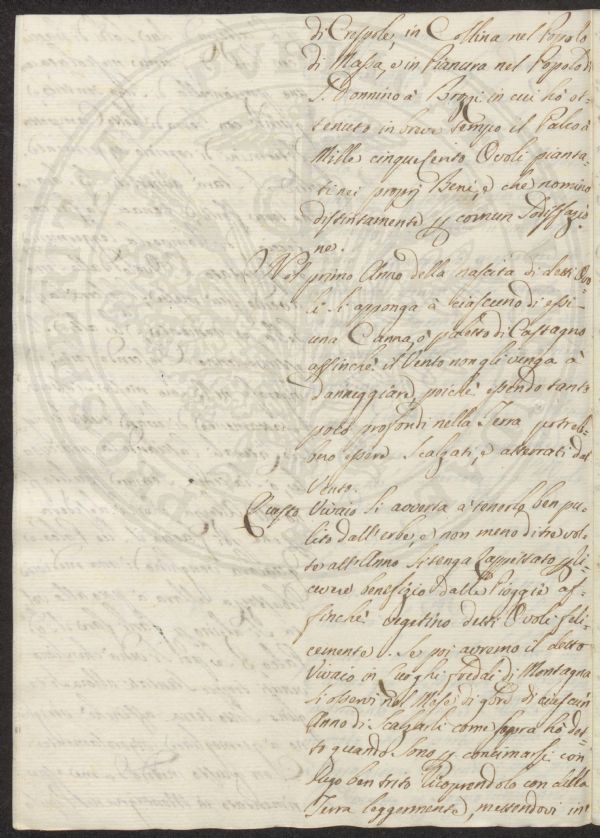 di Crespole, in Collina nel Popolo
di Massa, e in Pianura nel Popolo di
S. Donnino à Brozzi in cui hò ot=
tenuto in breve tempo il Palco à
Mille cinquecento Ovoli pianta=
ti nei proprj Beni, e che nomino
distintamente p comun Sodisfazio
ne.
Nel primo Anno della nascita di detti Ovo=
li si apponga à ciascuno di essi
una Canna, ò paletto di Castagno
affinchè il Vento non gli venga à
danneggiare, poichè essendo tanto
poco profondi nella Terra potreb=
bero essere Scalzati, e atterrati dal
Vento.
Questo Vivaio si averta à tenerlo ben pu=
lito dall'erbe, e non meno di tre vol=
te all'Anno si tenga Zappettato p ri=
cevere benefizio dalle Pioggie af=
finchè vegetino detti Ovoli feli=
cemente. Se poi avremo il detto
Vivaio in Luoghi freddi di Montagna
si osservi nel Mese di di ciascun
Anno di Scalzarli come sopra hò det=
to quando sono p concimarsi con
Sugo ben trito Ricoprendolo con della
Terra leggermente, mettendovi in